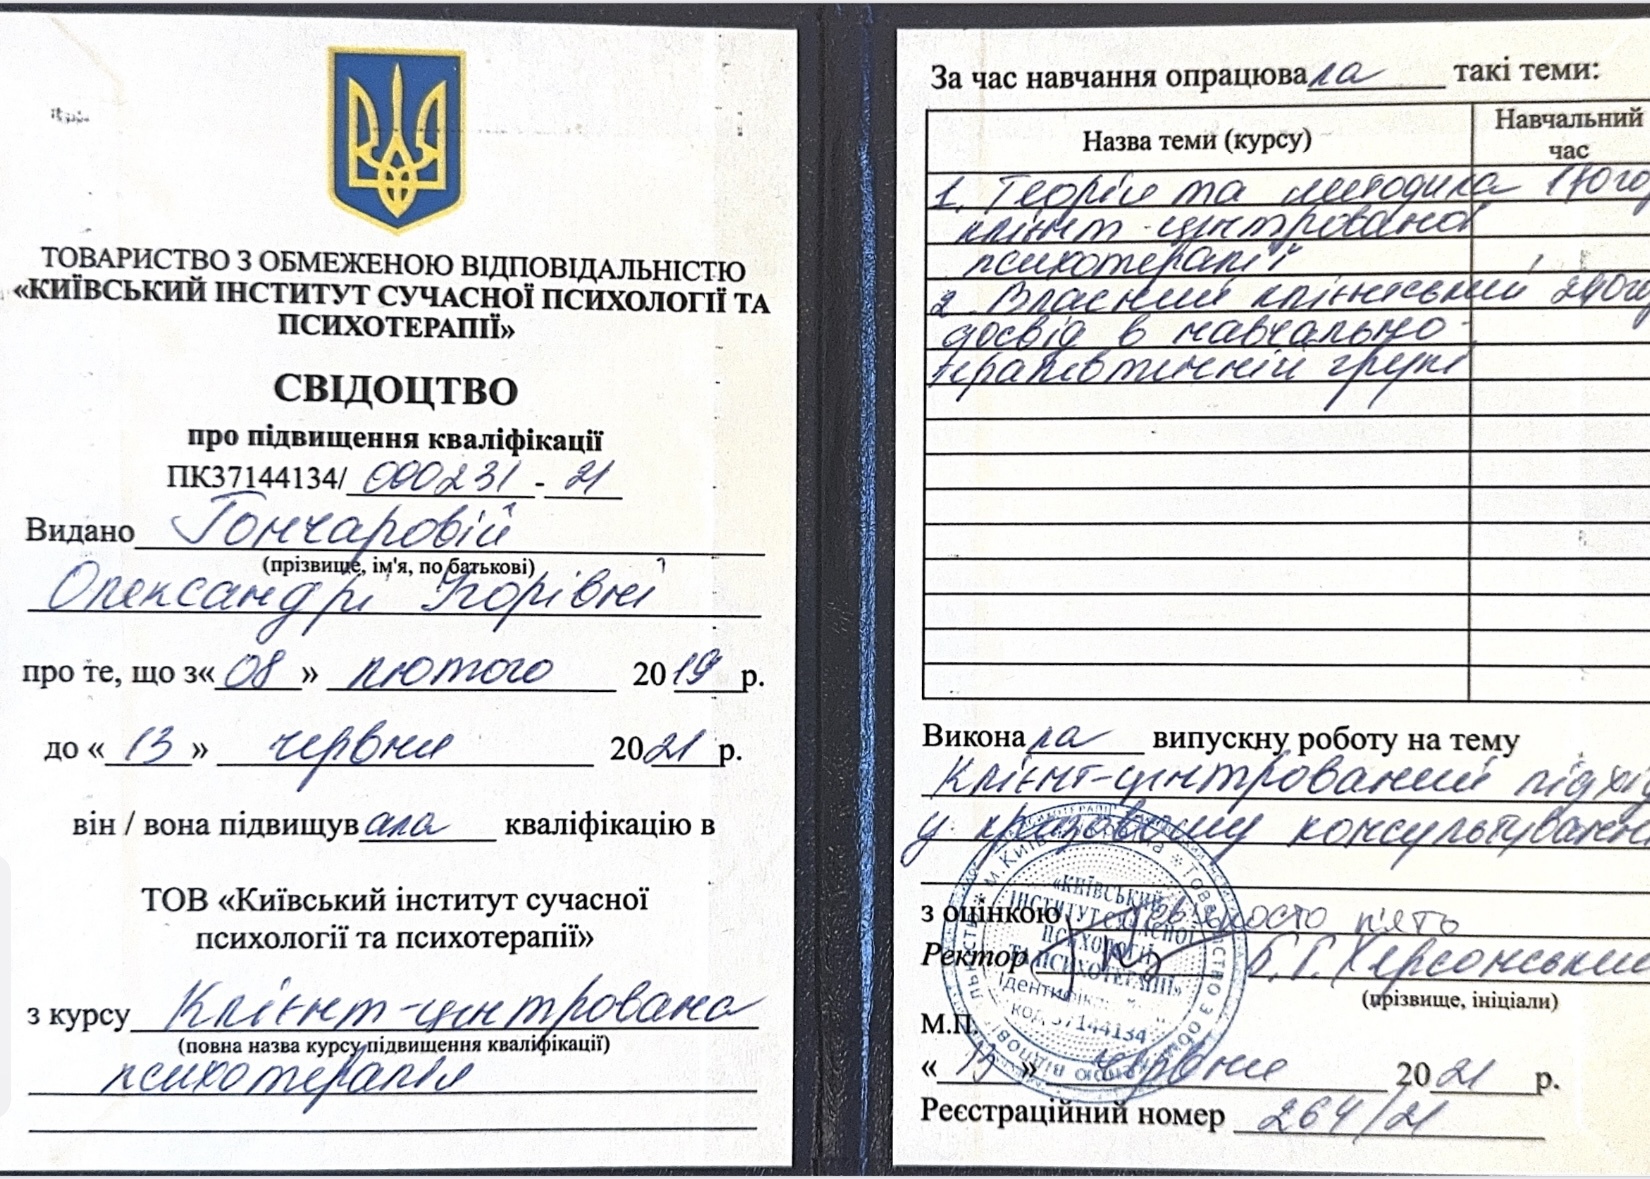 ТОВАРИСТВО З ОБМЕЖЕНОЮ ВІДПОВІДАЛЬНІСТЮ
«КИЇВСЬКИЙ ІНСТИТУТ СУЧАСНОЇ ПСИХОЛОГІЇ ТА
ПСИХОТЕРАПІЇ»
СВІДОЦТВО
про підвищення кваліфікації
ПК37144134/ 000231 - 21
Видано Гончаровій
(прізвище, ім'я, по батькові)
Олександрі Ігорівні
про те, що з« 08 » лютого 2019 р.
до « 13 » червня 2021 р.
він / вона підвищувала кваліфікацію в
ТОВ «Київський інститут сучасної
психології та психотерапії»
з курсу Клієнт-центрована
(повна назва курсу підвищення кваліфікації)
психотерапія
За час навчання опрацювала такі теми:
Назва теми (курсу)
Навчальний
час
1. Теорія та методика
клієнт-центрованої
психотерапії
2. Власний клієнтський
досвід в навчально-
терапевтичній групі
Виконала випускну роботу на тему
Клієнт-центрований підхід
у кризовому
з оцінкою п'ять
Ректор Б.Г. Херсонський
(прізвище, ініціали)
М.П.
« 13 » червня 2021 р.
Реєстраційний номер 264/21
«КИЇВСЬКИЙ
ІНСТИТУТ СУЧАСНОЇ
ПСИХОЛОГІЇ
ТА ПСИХОТЕРАПІЇ»
код 37144134